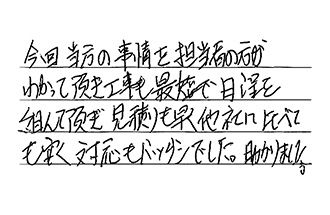 今回当方の事情を担当者の方が
わかって頂き工事も最短で日程を
組んで頂き見積りも早く他社に比べても
安く対応もバッチシでした。助かりました。